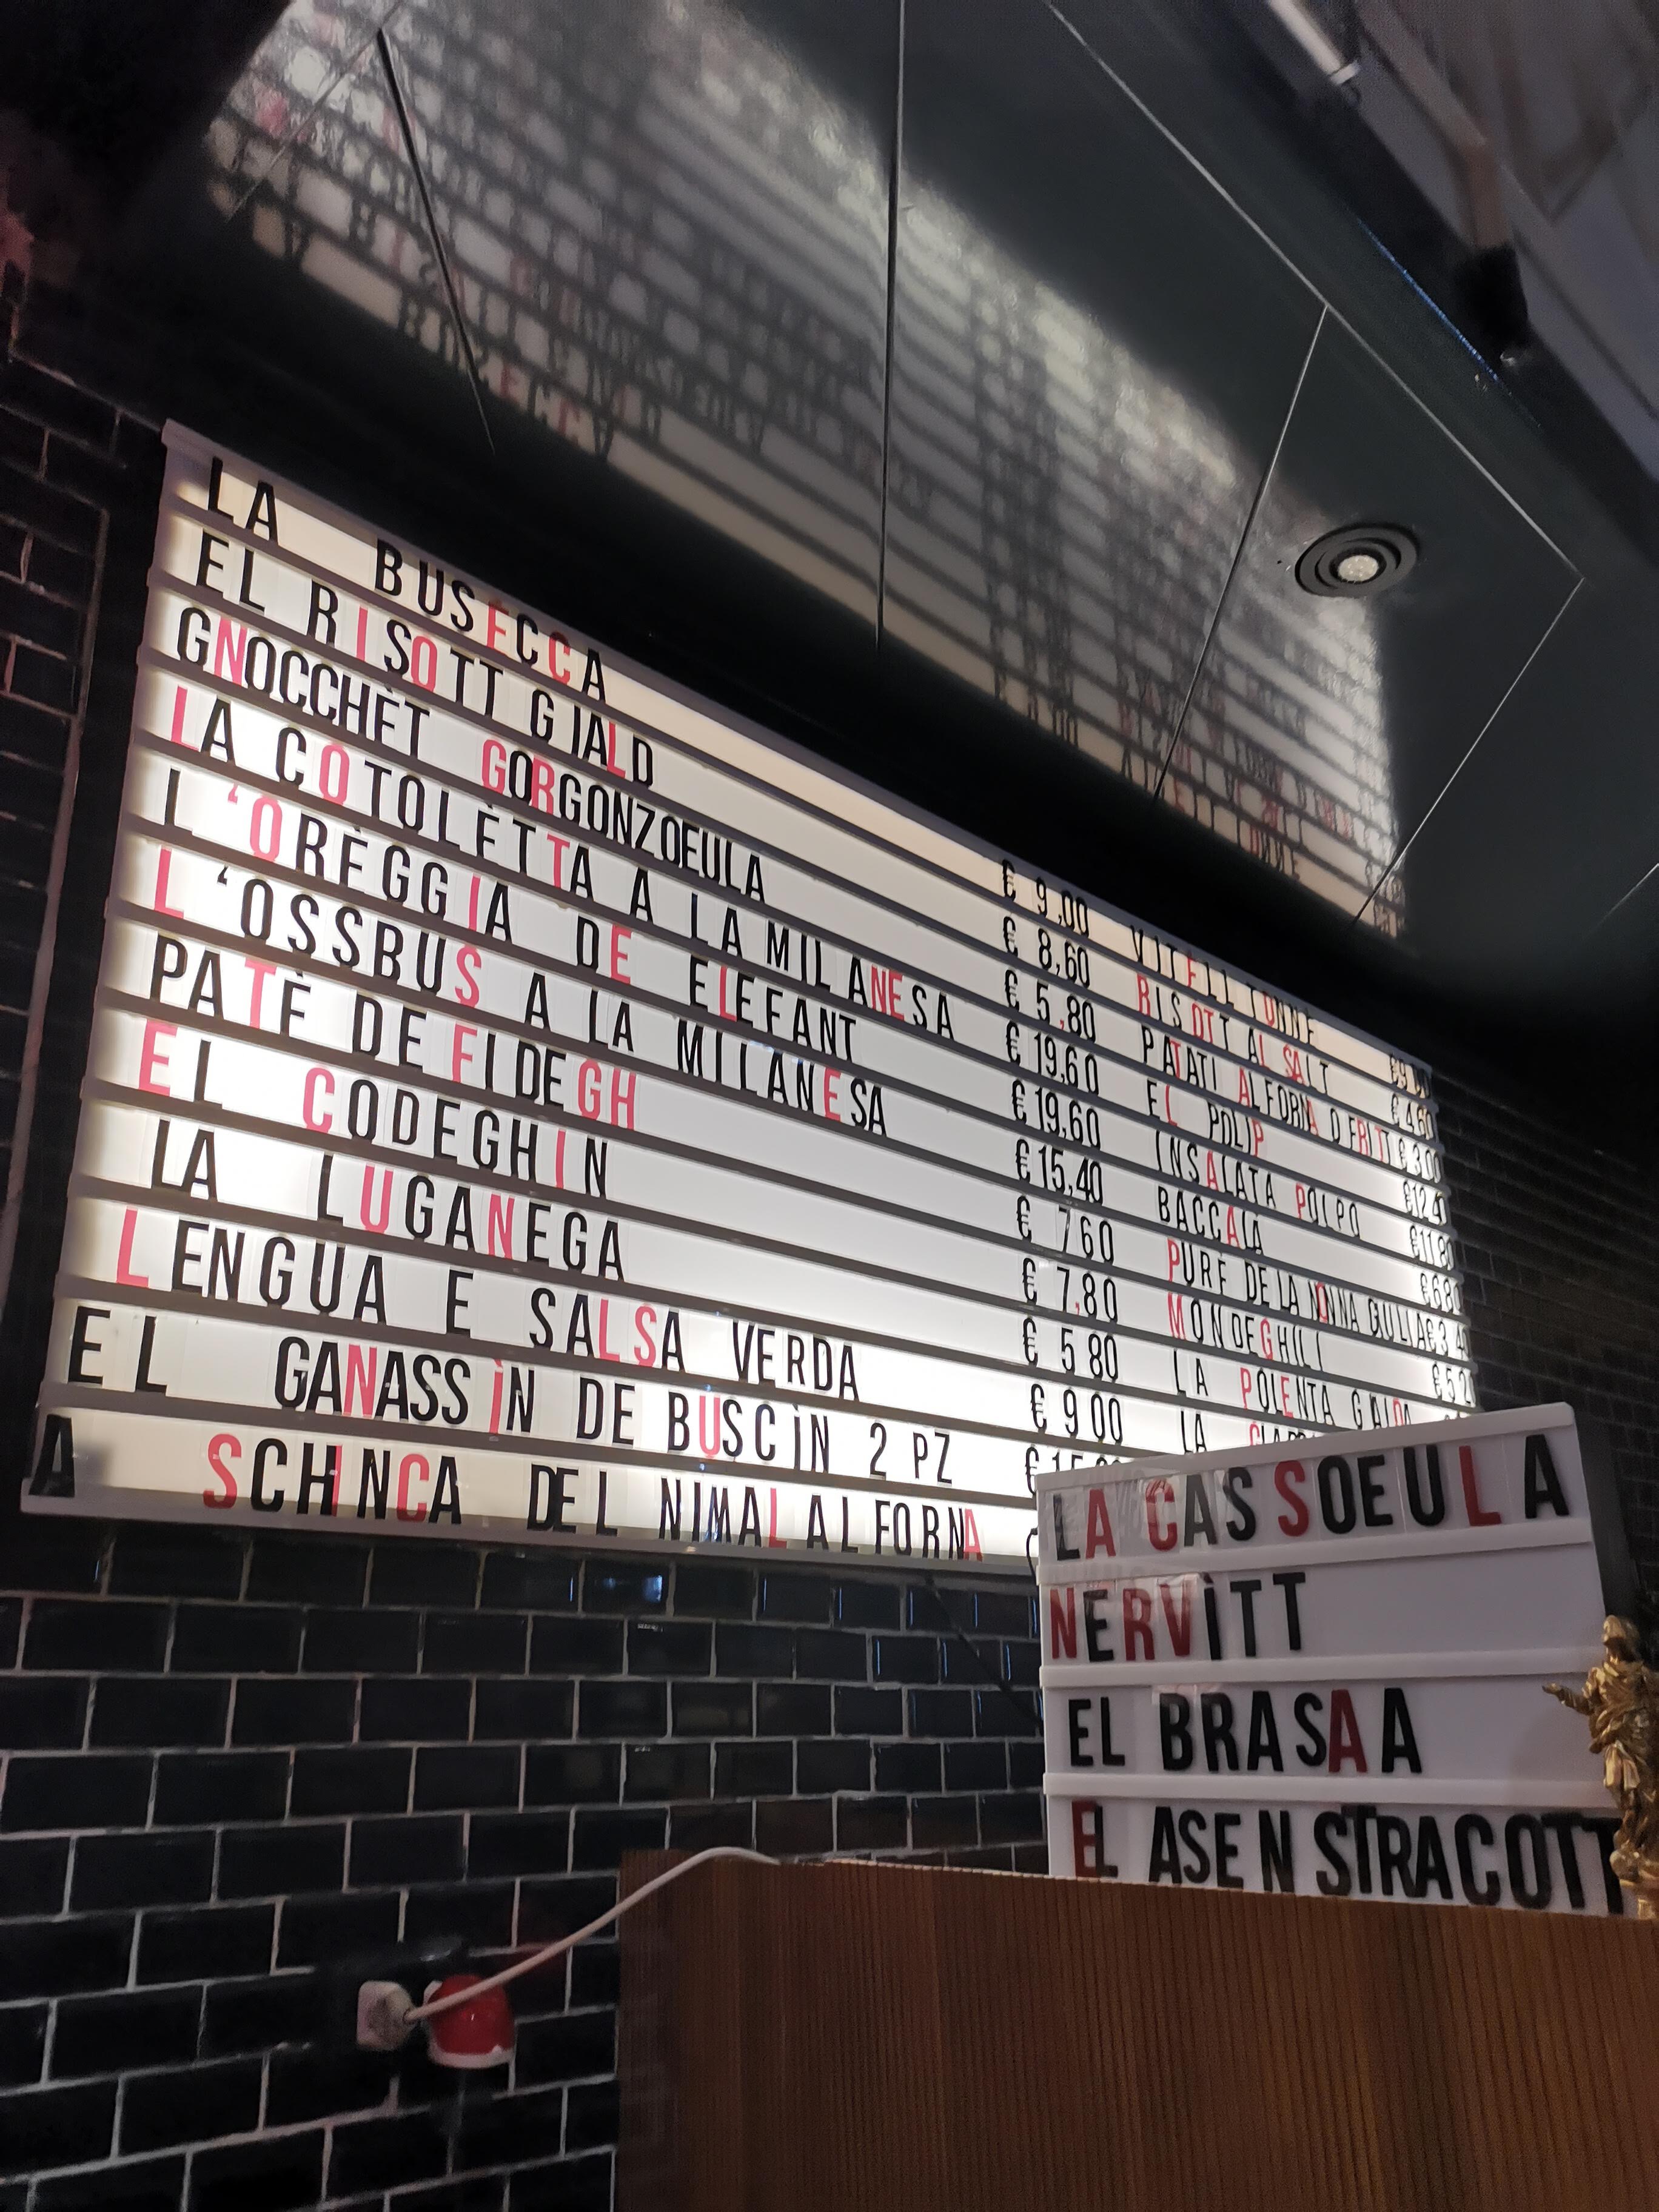 LA BUSECCA € 9,00
EL RISOTT GIALD € 8,60
GNOCCHÈT GORGONZOEULA € 5,80
LA COTOLÈTTA A LA MILANESA € 19,60
L'ORÈGGIA DE ELEFANT € 19,60
L'OSSBUS A LA MILANESA € 15,40
PATÈ DE FIDEGH € 7,60
EL CODEGHIN € 7,80
LA LUGANEGA € 5,80
LENGUA E SALSA VERDA € 9,00
EL GANASSIN DE BUSCIN 2 PZ
A SCHINCA DEL NIMAL AL FORNA
VITELL TONNÈ
RISOTT AL SALT € 4,60
PATATI AL FORNA O FRITT € 3,00
EL POLIP € 12,40
INSALATA POLPO € 11,80
BACCALA € 6,80
PURÈ DE LA NONNA GIULIA € 3,40
MONDEGHILI € 5,20
LA POLENTA GIALDA
LA
LA CASSOEULA
NERVÌTT
EL BRASAA
EL ASEN STRACOTT